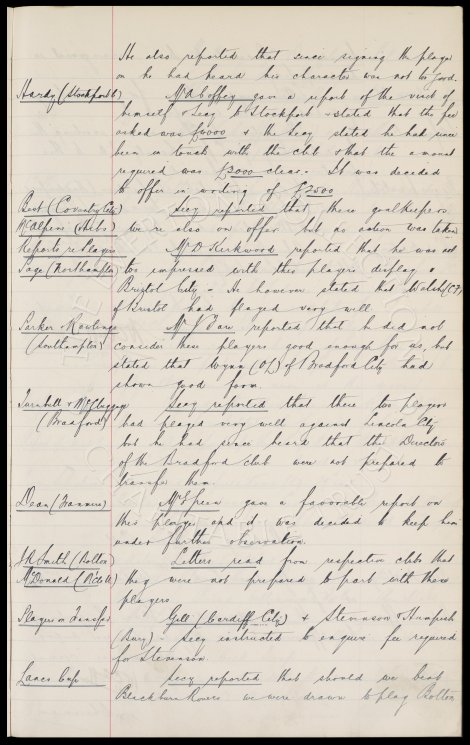 He also reported that since signing the player
on he had heard his character was not too good.
Hardy (Stockport C) Mr A Coffey gave a report of the visit of
himself & Secy to Stockport & stated that the fee
asked was £4000 & the Secy stated he had since
been in touch with the club & that the amount
required was £3000 clear. It was decided
to offer in writing of £2500
Best (Coventry City) Secy reported that these goalkeepers
McAlpine (Hibs) were also on offer but no action was taken
Reports re Players Mr D Kirkwood reported that he was not
Page (Northampton) too impressed with this players display v
Bristol City - He however stated that Walsh (CF)
of Bristol had played very well
Parker & Rowlings Mr reported that he did not
(Southampton) consider these players good enough for us, but
stated that Wynn (OL) of Bradford City had
shown good form.
Turnbull & McCluggage Secy reported that these two players
(Bradford) had played very well against Lincoln City
but he had since heard that the Directors
of the Bradford club were not prepared to
transfer them.
Dean (Tranmere) Mr Green gave a favorable report on
this player and it was decided to keep him
under further observation.
J R Smith (Bolton) Letters read from respective clubs that
McDonald (Airdrie) they were not prepared to part with these
players
Players on Transfer Gill (Cardiff City) & Stevenson & Humpish
(Bury) - Secy instructed to enquire fee required
for Stevenson.
Lancs Cup Secy reported that should we beat
Blackburn Rovers we were drawn to play Bolton